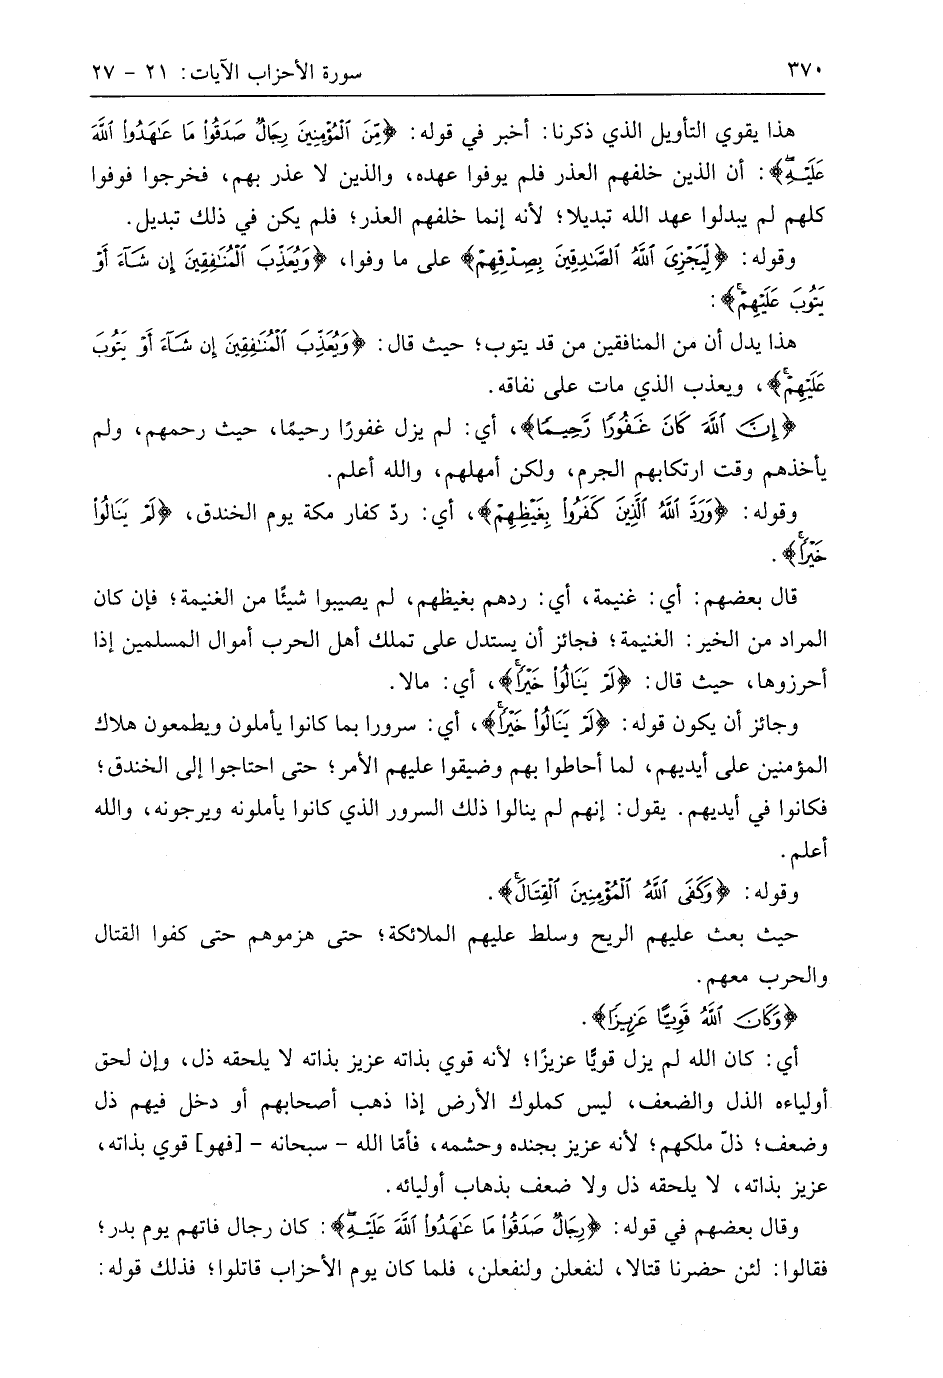 ٣٧٠ سورة الأحزاب الآيات: ٢١ - ٢٧
هذا يقوي التأويل الذي ذكرنا: أخبر في قوله: ﴿مِّنَ ٱلْمُؤْمِنِينَ رِجَالٌ صَدَقُوا۟ مَا عَـٰهَدُوا۟ ٱللَّهَ
عَلَيْهِۖ﴾: أن الذين خلفهم العذر فلم يوفوا عهده، والذين لا عذر بهم، فخرجوا فوفوا
كلهم لم يبدلوا عهد الله تبديلا؛ لأنه إنما خلفهم العذر؛ فلم يكن في ذلك تبديل.
وقوله: ﴿لِّيَجْزِىَ ٱللَّهُ ٱلصَّـٰدِقِينَ بِصِدْقِهِمْ﴾ على ما وفوا، ﴿وَيُعَذِّبَ ٱلْمُنَـٰفِقِينَ إِن شَآءَ أَوْ
يَتُوبَ عَلَيْهِمْۚ﴾:
هذا يدل أن من المنافقين من قد يتوب؛ حيث قال: ﴿وَيُعَذِّبَ ٱلْمُنَـٰفِقِينَ إِن شَآءَ أَوْ يَتُوبَ
عَلَيْهِمْۚ﴾، ويعذب الذي مات على نفاقه.
﴿إِنَّ ٱللَّهَ كَانَ غَفُورًا رَّحِيمًا﴾، أي: لم يزل غفورًا رحيمًا، حيث رحمهم، ولم
يأخذهم وقت ارتكابهم الجرم، ولكن أمهلهم، والله أعلم.
وقوله: ﴿وَرَدَّ ٱللَّهُ ٱلَّذِينَ كَفَرُوا۟ بِغَيْظِهِمْ﴾، أي: ردّ كفار مكة يوم الخندق، ﴿لَمْ يَنَالُوا۟
خَيْرًاۚ﴾.
قال بعضهم: أي: غنيمة، أي: ردهم بغيظهم، لم يصيبوا شيئًا من الغنيمة؛ فإن كان
المراد من الخير: الغنيمة؛ فجائز أن يستدل على تملك أهل الحرب أموال المسلمين إذا
أحرزوها، حيث قال: ﴿لَمْ يَنَالُوا۟ خَيْرًاۚ﴾، أي: مالا.
وجائز أن يكون قوله: ﴿لَمْ يَنَالُوا۟ خَيْرًاۚ﴾، أي: سرورا بما كانوا يأملون ويطمعون هلاك
المؤمنين على أيديهم، لما أحاطوا بهم وضيقوا عليهم الأمر؛ حتى احتاجوا إلى الخندق؛
فكانوا في أيديهم. يقول: إنهم لم ينالوا ذلك السرور الذي كانوا يأملونه ويرجونه، والله
أعلم.
وقوله: ﴿وَكَفَى ٱللَّهُ ٱلْمُؤْمِنِينَ ٱلْقِتَالَۚ﴾.
حيث بعث عليهم الريح وسلط عليهم الملائكة؛ حتى هزموهم حتى كفوا القتال
والحرب معهم.
﴿وَكَانَ ٱللَّهُ قَوِيًّا عَزِيزًا﴾.
أي: كان الله لم يزل قويًّا عزيزًا؛ لأنه قوي بذاته عزيز بذاته لا يلحقه ذل، وإن لحق
أولياءه الذل والضعف، ليس كملوك الأرض إذا ذهب أصحابهم أو دخل فيهم ذل
وضعف؛ ذلّ ملكهم؛ لأنه عزيز بجنده وحشمه، فأمّا الله - سبحانه - [فهو] قوي بذاته،
عزيز بذاته، لا يلحقه ذل ولا ضعف بذهاب أوليائه.
وقال بعضهم في قوله: ﴿رِجَالٌ صَدَقُوا۟ مَا عَـٰهَدُوا۟ ٱللَّهَ عَلَيْهِۖ﴾: كان رجال فاتهم يوم بدر؛
فقالوا: لئن حضرنا قتالا، لنفعلن ولنفعلن، فلما كان يوم الأحزاب قاتلوا؛ فذلك قوله: